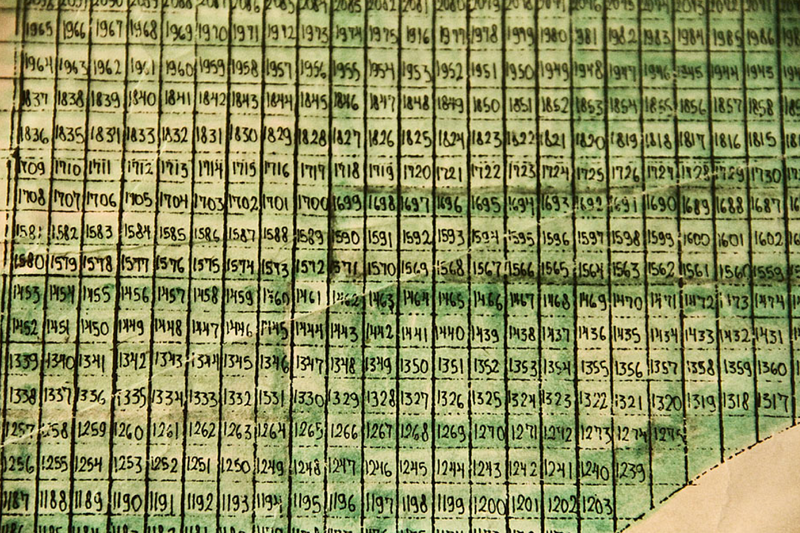 1965 1966 1967 1968 1969 1970 1971 1972 1973 1974 1975 1976 1977 1978 1979 1980 1981 1982 1983 1984 1985 1986
1964 1963 1962 1961 1960 1959 1958 1957 1956 1955 1954 1953 1952 1951 1950 1949 1948 1947 1946 1945 1944 1943
1837 1838 1839 1840 1841 1842 1843 1844 1845 1846 1847 1848 1849 1850 1851 1852 1853 1854 1855 1856 1857 1858
1836 1835 1834 1833 1832 1831 1830 1829 1828 1827 1826 1825 1824 1823 1822 1821 1820 1819 1818 1817 1816 1815
1709 1710 1711 1712 1713 1714 1715 1716 1717 1718 1719 1720 1721 1722 1723 1724 1725 1726 1727 1728 1729 1730
1708 1707 1706 1705 1704 1703 1702 1701 1700 1699 1698 1697 1696 1695 1694 1693 1692 1691 1690 1689 1688 1687
1581 1582 1583 1584 1585 1586 1587 1588 1589 1590 1591 1592 1593 1594 1595 1596 1597 1598 1599 1600 1601 1602
1580 1579 1578 1577 1576 1575 1574 1573 1572 1571 1570 1569 1568 1567 1566 1565 1564 1563 1562 1561 1560 1559
1453 1454 1455 1456 1457 1458 1459 1460 1461 1462 1463 1464 1465 1466 1467 1468 1469 1470 1471 1472 1473 1474
1452 1451 1450 1449 1448 1447 1446 1445 1444 1443 1442 1441 1440 1439 1438 1437 1436 1435 1434 1433 1432 1431
1339 1340 1341 1342 1343 1344 1345 1346 1347 1348 1349 1350 1351 1352 1353 1354 1355 1356 1357 1358 1359 1360
1338 1337 1336 1335 1334 1333 1332 1331 1330 1329 1328 1327 1326 1325 1324 1323 1322 1321 1320 1319 1318 1317
1257 1258 1259 1260 1261 1262 1263 1264 1265 1266 1267 1268 1269 1270 1271 1272 1273 1274 1275
1256 1255 1254 1253 1252 1251 1250 1249 1248 1247 1246 1245 1244 1243 1242 1241 1240 1239
1187 1188 1189 1190 1191 1192 1193 1194 1195 1196 1197 1198 1199 1200 1201 1202 1203